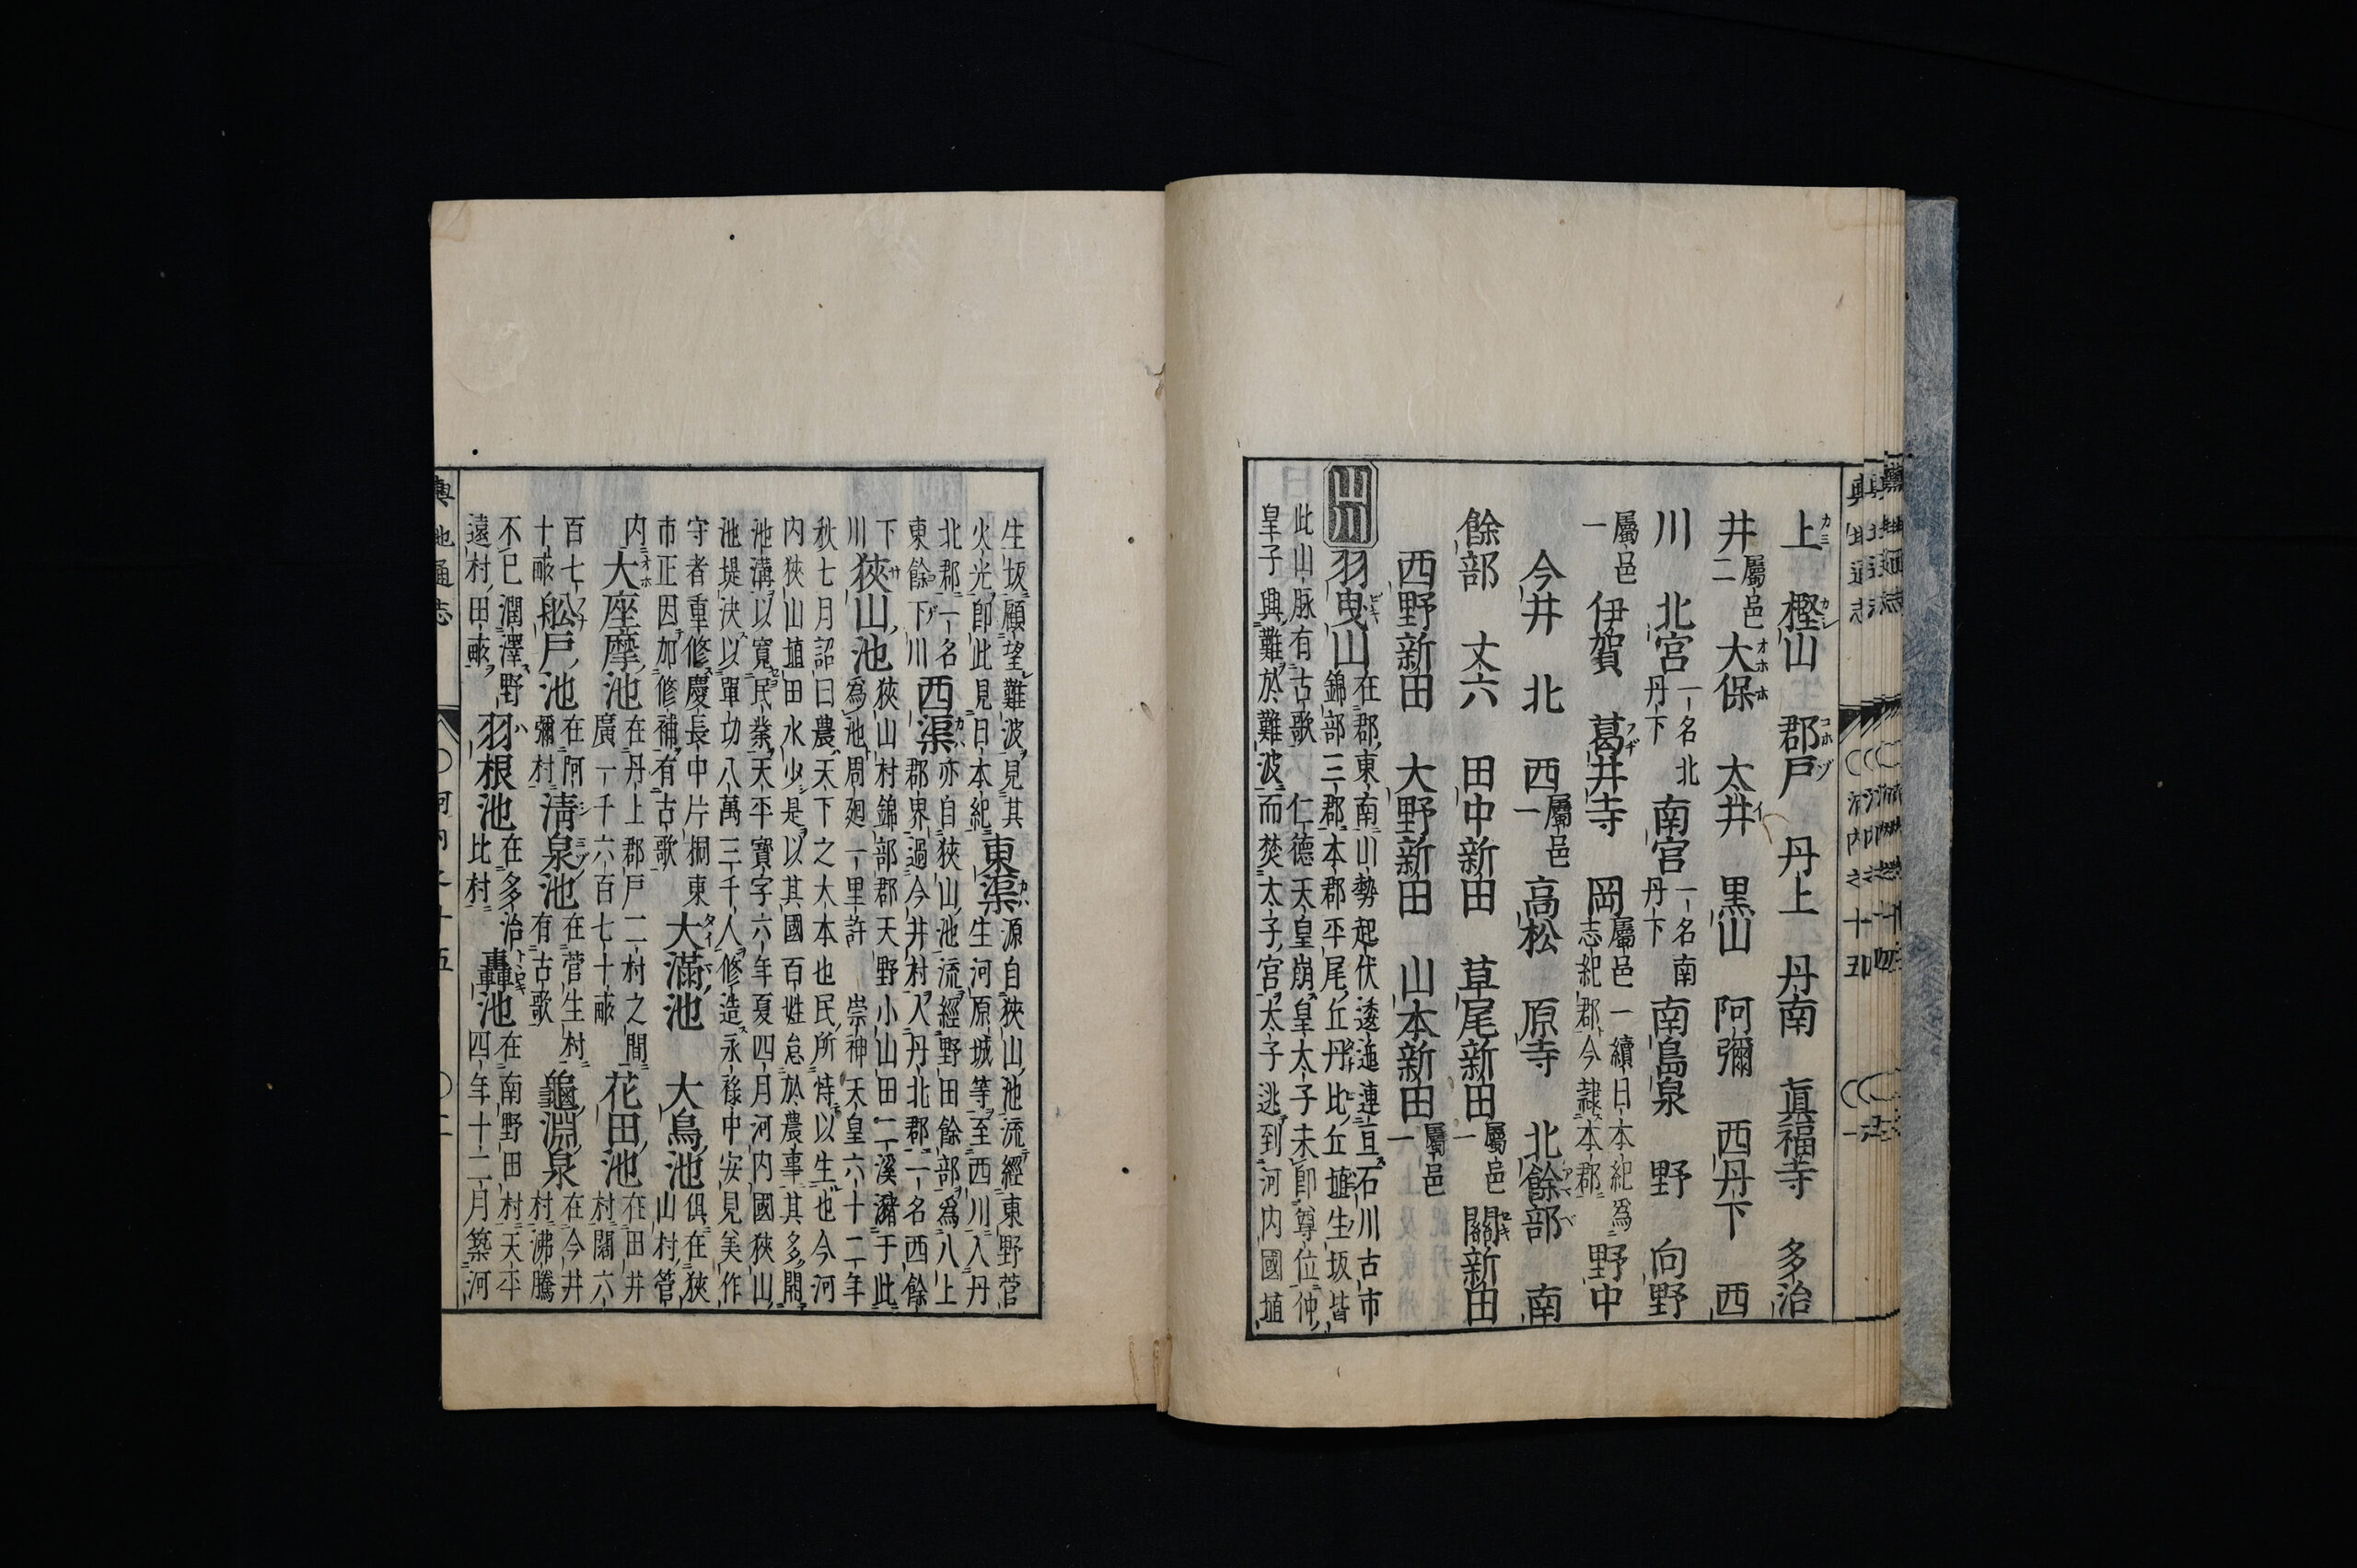 上 樫山 郡戸 丹上 丹南 眞福寺 多治
井 屬邑二 大保 太井 黒山 阿彌 西丹下 西
川 北宮 一名北丹下 南宮 一名南丹下 南島泉 野 向野
屬邑一 伊賀 葛井寺 岡 屬邑一續日本紀爲志紀郡今隷本郡 野中
今井 北 西 屬邑一 高松 原寺 北餘部 南
餘部 丈六 田中新田 草尾新田 屬邑一 關新田
西野新田 大野新田 山本新田 屬邑一
山川 羽曳山 在郡東南山勢起伏逶迤連亘石川古市
錦部三郡本郡平尾丘丹比丘埴生坂皆
此山脉有古歌 仁德天皇崩皇太子未即尊位仲
皇子興難於難波而焚太子宮太子逃到河内國埴
生坂顧望難波見其
火光卽此見日本紀 東渠 源自狹山池流經東野菅
生河原城等至西川入丹
北郡一名
東餘下川 西渠 亦自狹山池流經野田餘部爲八上
郡界過今井村入丹北郡一名西餘
下
川 狹山池 狹山村錦部郡天野小山田二溪瀦于此
爲池周廻一里許 崇神天皇六十二年
秋七月詔曰農天下之大本也民所恃以生也今河
内狹山埴田水少是以其國百姓怠於農事其多開
池溝以寬民業天平寶字六年夏四月河内國狹山
池堤決以單功八萬三千人修造永祿中安見美作
守者重修慶長中片桐東
市正因加修補有古歌 大滿池 大鳥池 俱在狹
山村管
内 大座摩池 在丹上郡戸二村之間
廣一千六百七十畝 花田池 在田井
村闊六
百七
十畝 舩戸池 在阿
彌村 淸泉池 在菅生村
有古歌 龜淵泉 在今井
村沸騰
不已潤澤野
遠村田畝 羽根池 在多治
比村 轟池 在南野田村天平
四年十二月築河